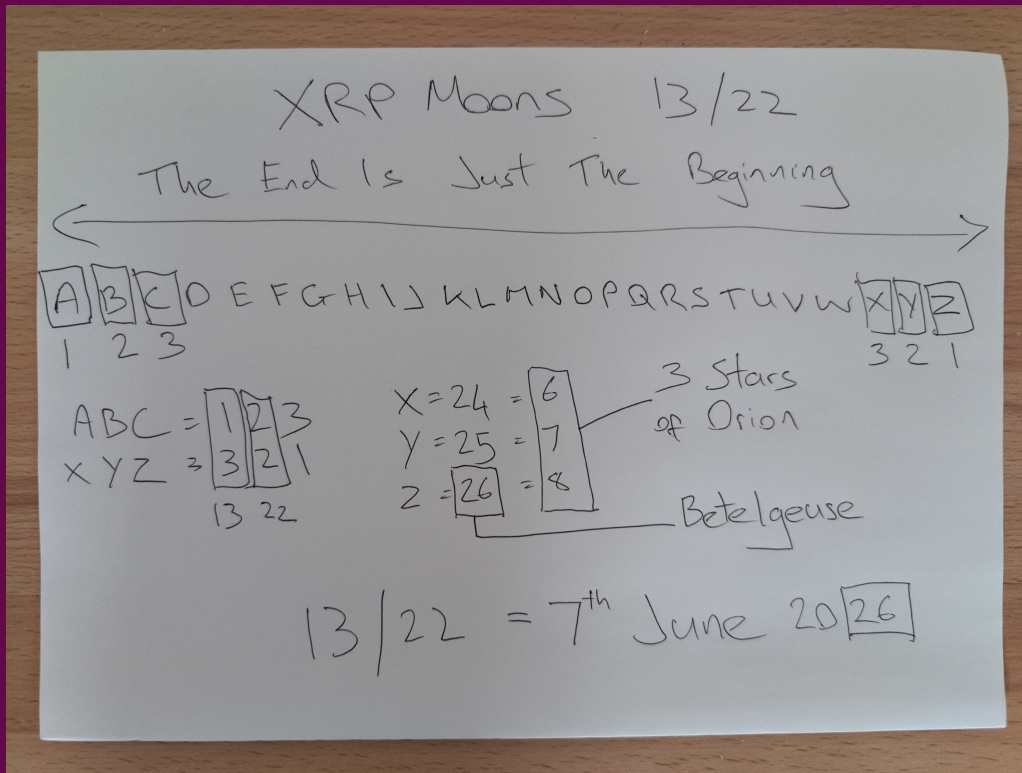 XRP Moons 13/22
The End Is Just The Beginning
A B C D E F G H I J K L M N O P Q R S T U V W X Y Z
1 2 3 3 2 1
ABC = 1 2 3
XYZ = 3 2 1
13 22
X = 24 = 6
Y = 25 = 7
Z = 26 = 8
3 Stars
of Orion
Betelgeuse
13/22 = 7th June 2026